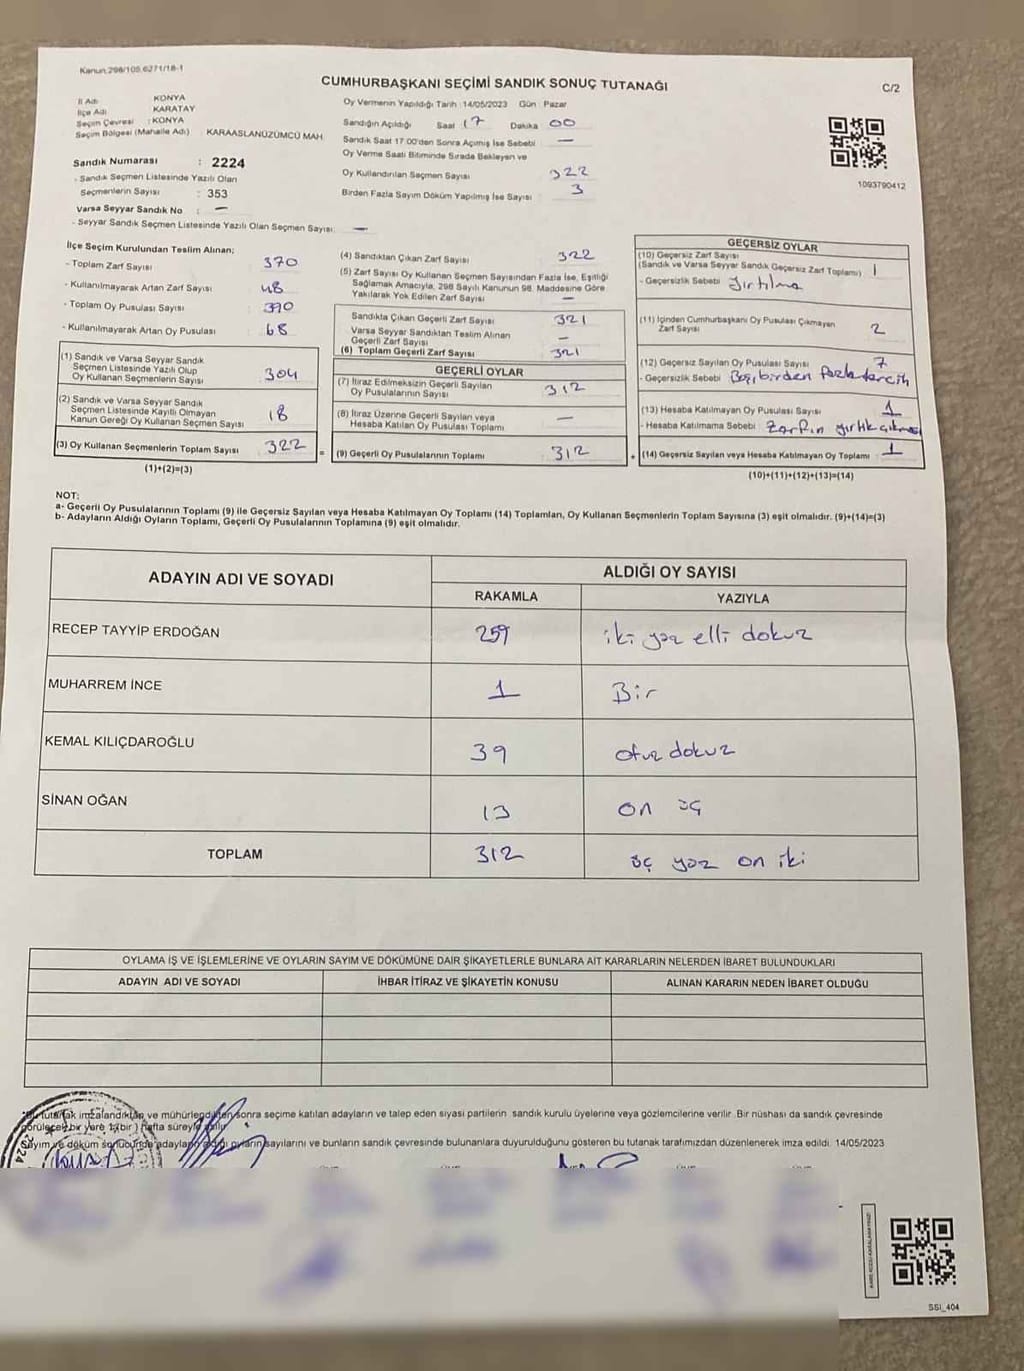 Kanun:298/105,6271/18-1
CUMHURBAŞKANI SEÇİMİ SANDIK SONUÇ TUTANAĞI
C/2
İl Adı : KONYA
İlçe Adı : KARATAY
Seçim Çevresi : KONYA
Seçim Bölgesi (Mahalle Adı) : KARAASLANÜZÜMCÜ MAH.
Sandık Numarası : 2224
- Sandık Seçmen Listesinde Yazılı Olan
Seçmenlerin Sayısı : 353
Varsa Seyyar Sandık No : —
- Seyyar Sandık Seçmen Listesinde Yazılı Olan Seçmen Sayısı: —
Oy Vermenin Yapıldığı Tarih :14/05/2023 Gün : Pazar
Sandığın Açıldığı Saat 17 Dakika 00
Sandık Saat 17.00'den Sonra Açımış İse Sebebi —
Oy Verme Saati Bitiminde Sırada Bekleyen ve
Oy Kullandırılan Seçmen Sayısı 322
Birden Fazla Sayım Döküm Yapılmış İse Sayısı 3
1093790412
İlçe Seçim Kurulundan Teslim Alınan;
- Toplam Zarf Sayısı 370
- Kullanılmayarak Artan Zarf Sayısı 48
- Toplam Oy Pusulası Sayısı 390
- Kullanılmayarak Artan Oy Pusulası 68
(1) Sandık ve Varsa Seyyar Sandık
Seçmen Listesinde Yazılı Olup
Oy Kullanan Seçmenlerin Sayısı 304
(2) Sandık ve Varsa Seyyar Sandık
Seçmen Listesinde Kayıtlı Olmayan
Kanun Gereği Oy Kullanan Seçmen Sayısı 18
(3) Oy Kullanan Seçmenlerin Toplam Sayısı 322
(1)+(2)=(3)
(4) Sandıktan Çıkan Zarf Sayısı 322
(5) Zarf Sayısı Oy Kullanan Seçmen Sayısından Fazla İse, Eşitliği
Sağlamak Amacıyla, 298 Sayılı Kanunun 98. Maddesine Göre
Yakılarak Yok Edilen Zarf Sayısı —
Sandıkta Çıkan Geçerli Zarf Sayısı 321
Varsa Seyyar Sandıktan Teslim Alınan
Geçerli Zarf Sayısı —
(6) Toplam Geçerli Zarf Sayısı 321
GEÇERLİ OYLAR
(7) İtiraz Edilmeksizin Geçerli Sayılan
Oy Pusulasının Sayısı 312
(8) İtiraz Üzerine Geçerli Sayılan veya
Hesaba Katılan Oy Pusulası Toplamı —
= (9) Geçerli Oy Pusulalarının Toplamı 312
GEÇERSİZ OYLAR
(10) Geçersiz Zarf Sayısı
(Sandık ve Varsa Seyyar Sandık Geçersiz Zarf Toplamı) 1
- Geçersizlik Sebebi Yırtılma
(11) İçinden Cumhurbaşkanı Oy Pusulası Çıkmayan
Zarf Sayısı 2
(12) Geçersiz Sayılan Oy Pusulası Sayısı 7
- Geçersizlik Sebebi Boş, birden fazla tercih
(13) Hesaba Katılmayan Oy Pusulası Sayısı 1
- Hesaba Katılmama Sebebi Zarfın yırtık çıkması
+ (14) Geçersiz Sayılan veya Hesaba Katılmayan Oy Toplamı 1
(10)+(11)+(12)+(13)=(14)
NOT:
a- Geçerli Oy Pusulalarının Toplamı (9) ile Geçersiz Sayılan veya Hesaba Katılmayan Oy Toplamı (14) Toplamları, Oy Kullanan Seçmenlerin Toplam Sayısına (3) eşit olmalıdır. (9)+(14)=(3)
b- Adayların Aldığı Oyların Toplamı, Geçerli Oy Pusulalarının Toplamına (9) eşit olmalıdır.
ADAYIN ADI VE SOYADI ALDIĞI OY SAYISI
RAKAMLA YAZIYLA
RECEP TAYYİP ERDOĞAN 259 iki yüz elli dokuz
MUHARREM İNCE 1 Bir
KEMAL KILIÇDAROĞLU 39 otuz dokuz
SİNAN OĞAN 13 on üç
TOPLAM 312 üç yüz on iki
OYLAMA İŞ VE İŞLEMLERİNE VE OYLARIN SAYIM VE DÖKÜMÜNE DAİR ŞİKAYETLERLE BUNLARA AİT KARARLARIN NELERDEN İBARET BULUNDUKLARI
ADAYIN ADI VE SOYADI İHBAR İTİRAZ VE ŞİKAYETİN KONUSU ALINAN KARARIN NEDEN İBARET OLDUĞU
*Bu tutanak imzalandıktan ve mühürlendikten sonra seçime katılan adayların ve talep eden siyasi partilerin sandık kurulu üyelerine veya gözlemcilerine verilir. Bir nüshası da sandık çevresinde
görülecek bir yere 1 (bir) hafta süreyle asılır.
Sayım ve döküm sonucunda adayların aldığı oyların sayılarını ve bunların sandık çevresinde bulunanlara duyurulduğunu gösteren bu tutanak tarafımızdan düzenlenerek imza edildi. 14/05/2023
2224
SSI_404